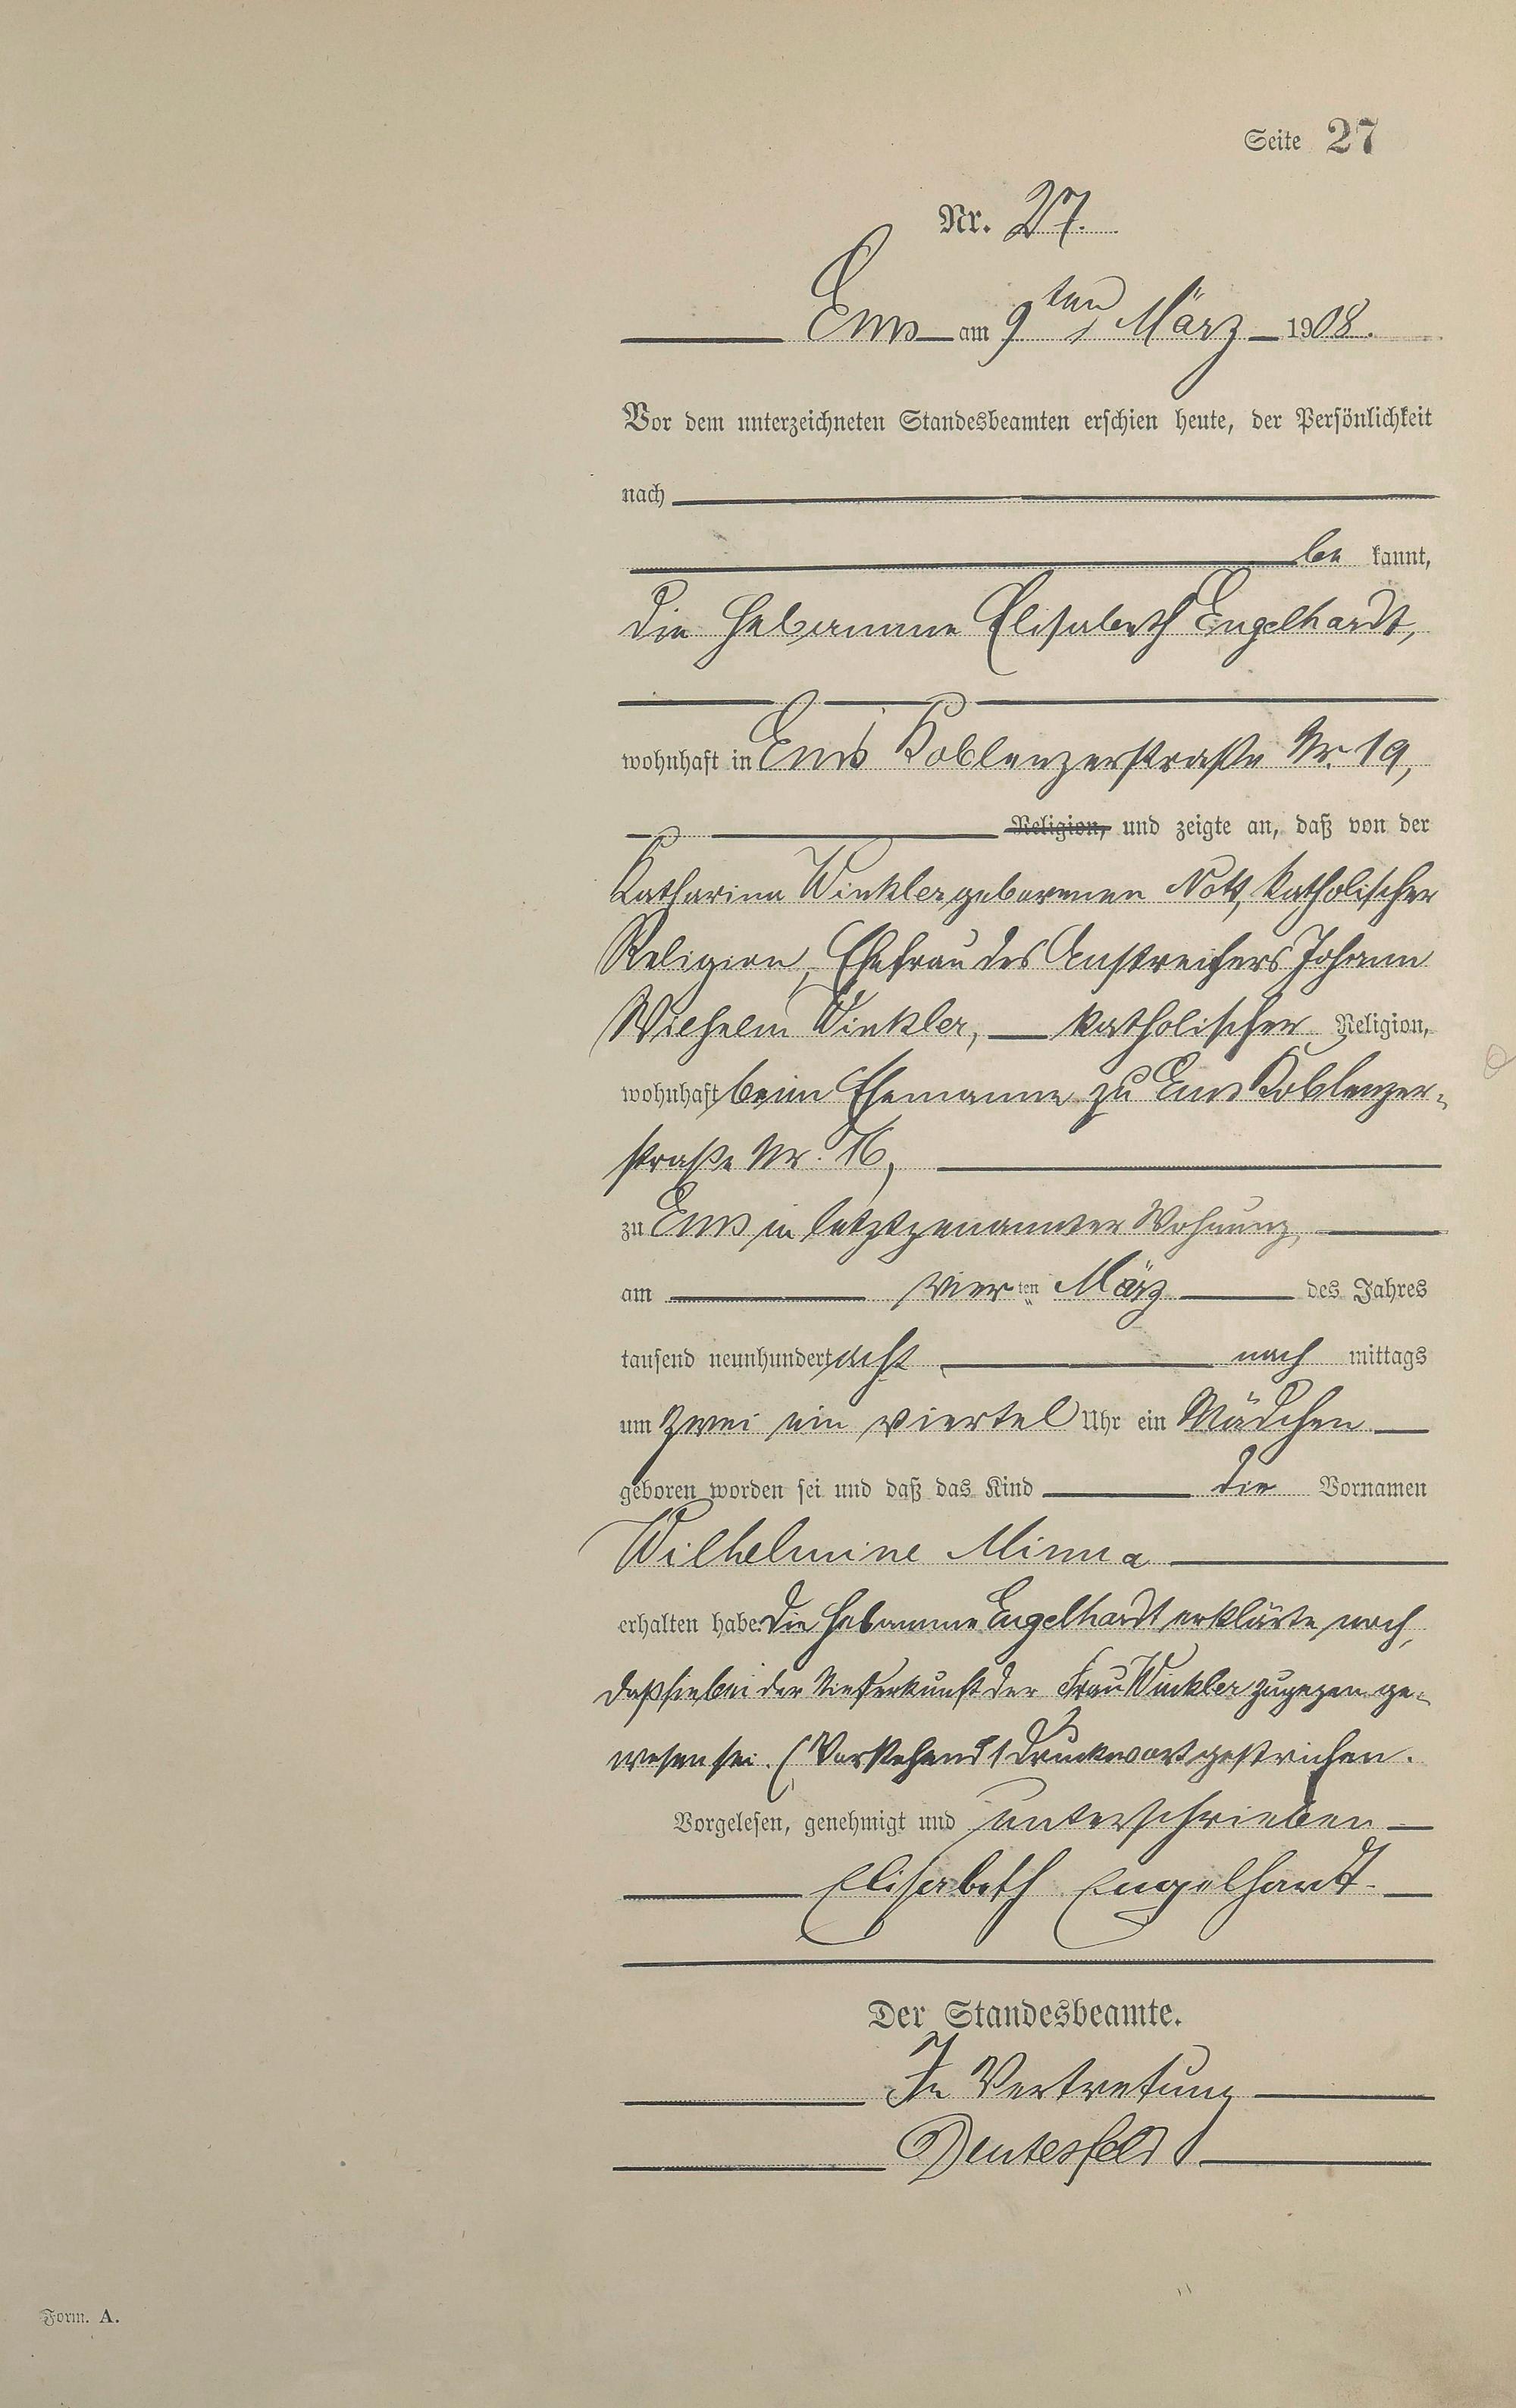 Seite 27
Nr. 27.
Ems am 9ten März 1908.
Vor dem unterzeichneten Standesbeamten erschien heute, der Persönlichkeit
nach
be kannt,
die Hebamme Elisabeth Engelhardt,
wohnhaft in Ems Koblenzerstraße Nr. 19,
Religion, und zeigte an, daß von der
Katharina Winkler geborenen Nott, katholischer
Religion, Ehefrau des Anstreichers Johann
Wilhelm Winkler, katholischer Religion,
wohnhaft beim Ehemanne zu Ems Koblenzer-
straße Nr. 16,
zu Ems in letztgenannter Wohnung,
am vier ten März des Jahres
tausend neunhundert acht nach mittags
um zwei ein viertel Uhr ein Mädchen
geboren worden sei und daß das Kind die Vornamen
Wilhelmine Minna
erhalten habe. Die Hebamme Engelhardt erklärte noch,
daß sie bei der Niederkunft der Frau Winkler zugegen ge-
wesen sei. (Vorstehend 1 Druckwort gestrichen.
Vorgelesen, genehmigt und unterschrieben
Elisabeth Engelhardt.
Der Standesbeamte.
In Vertretung
Deutesfeld
Form. A.